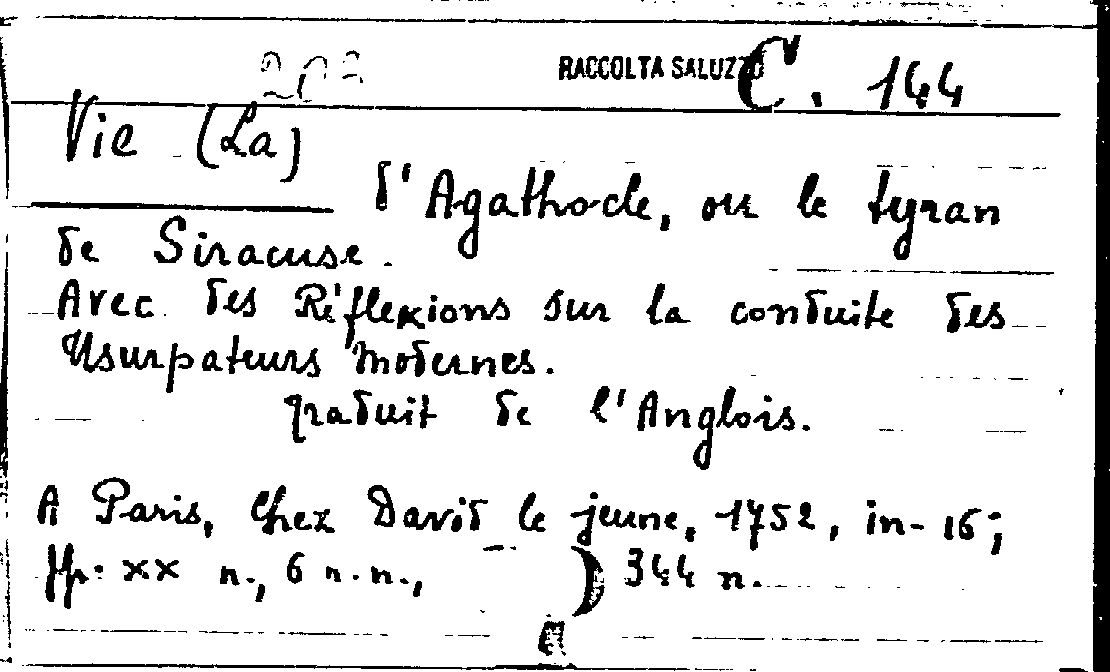 202 RACCOLTA SALUZZO C. 144
Vie (La)
d'Agathocle, ou le tyran
de Siracuse.
Avec des Réflexions sur la conduite des
Usurpateurs modernes.
Traduit de l'Anglois.
A Paris, Chez David le jeune, 1752, in-16;
pp. XX n., 6 n.n., 344 n.